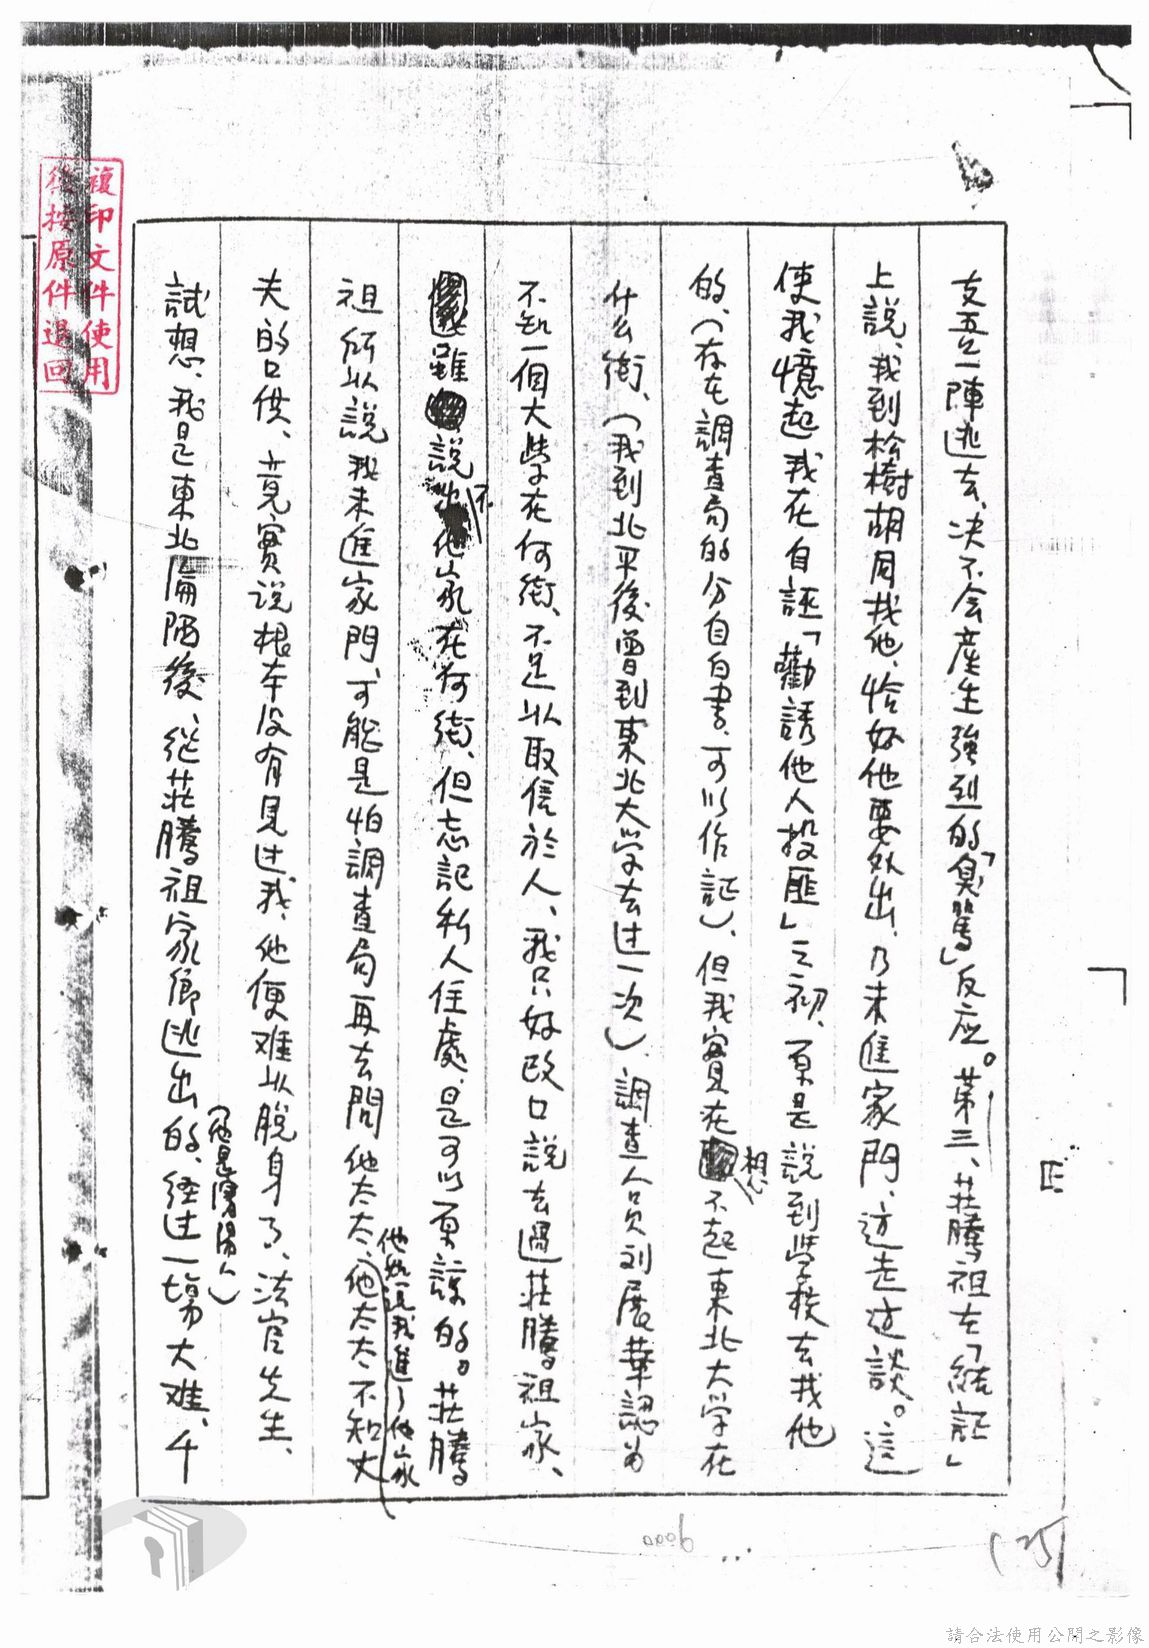 支吾一陣逃去、决不会產生強烈的「臭罵」反应。第三、莊騰祖在「結証」
上說、我到松樹胡同找他、恰好他要外出、乃未進家門、边走边談。這
使我憶起我在自誣「勸誘他人投匪」之初、原是說到學校去找他
的、(存在調查局的分自白書、可以作証)、但我實在想不起東北大学在
什么街、(我到北平後曾到東北大学去过一次)、調查人員刘展華認為
不知一個大學在何街、不足以取信於人、我只好改口說去過莊騰祖家、
雖說不出他家在何街、但忘記私人住處、是可以原諒的。莊騰
祖所以說我未進家門、可能是怕調查局再去問他太太、他如說我進了他家、他太太不知丈
夫的口供、竟實说根本没有見过我、他便难以脫身了、法官先生、
試想、我是東北淪陷後、從莊騰祖家鄉逃出的、(他是瀋陽人)經过一場大难、千
複印文件使用
後按原件退回
0006
(25)
請合法使用公開之影像